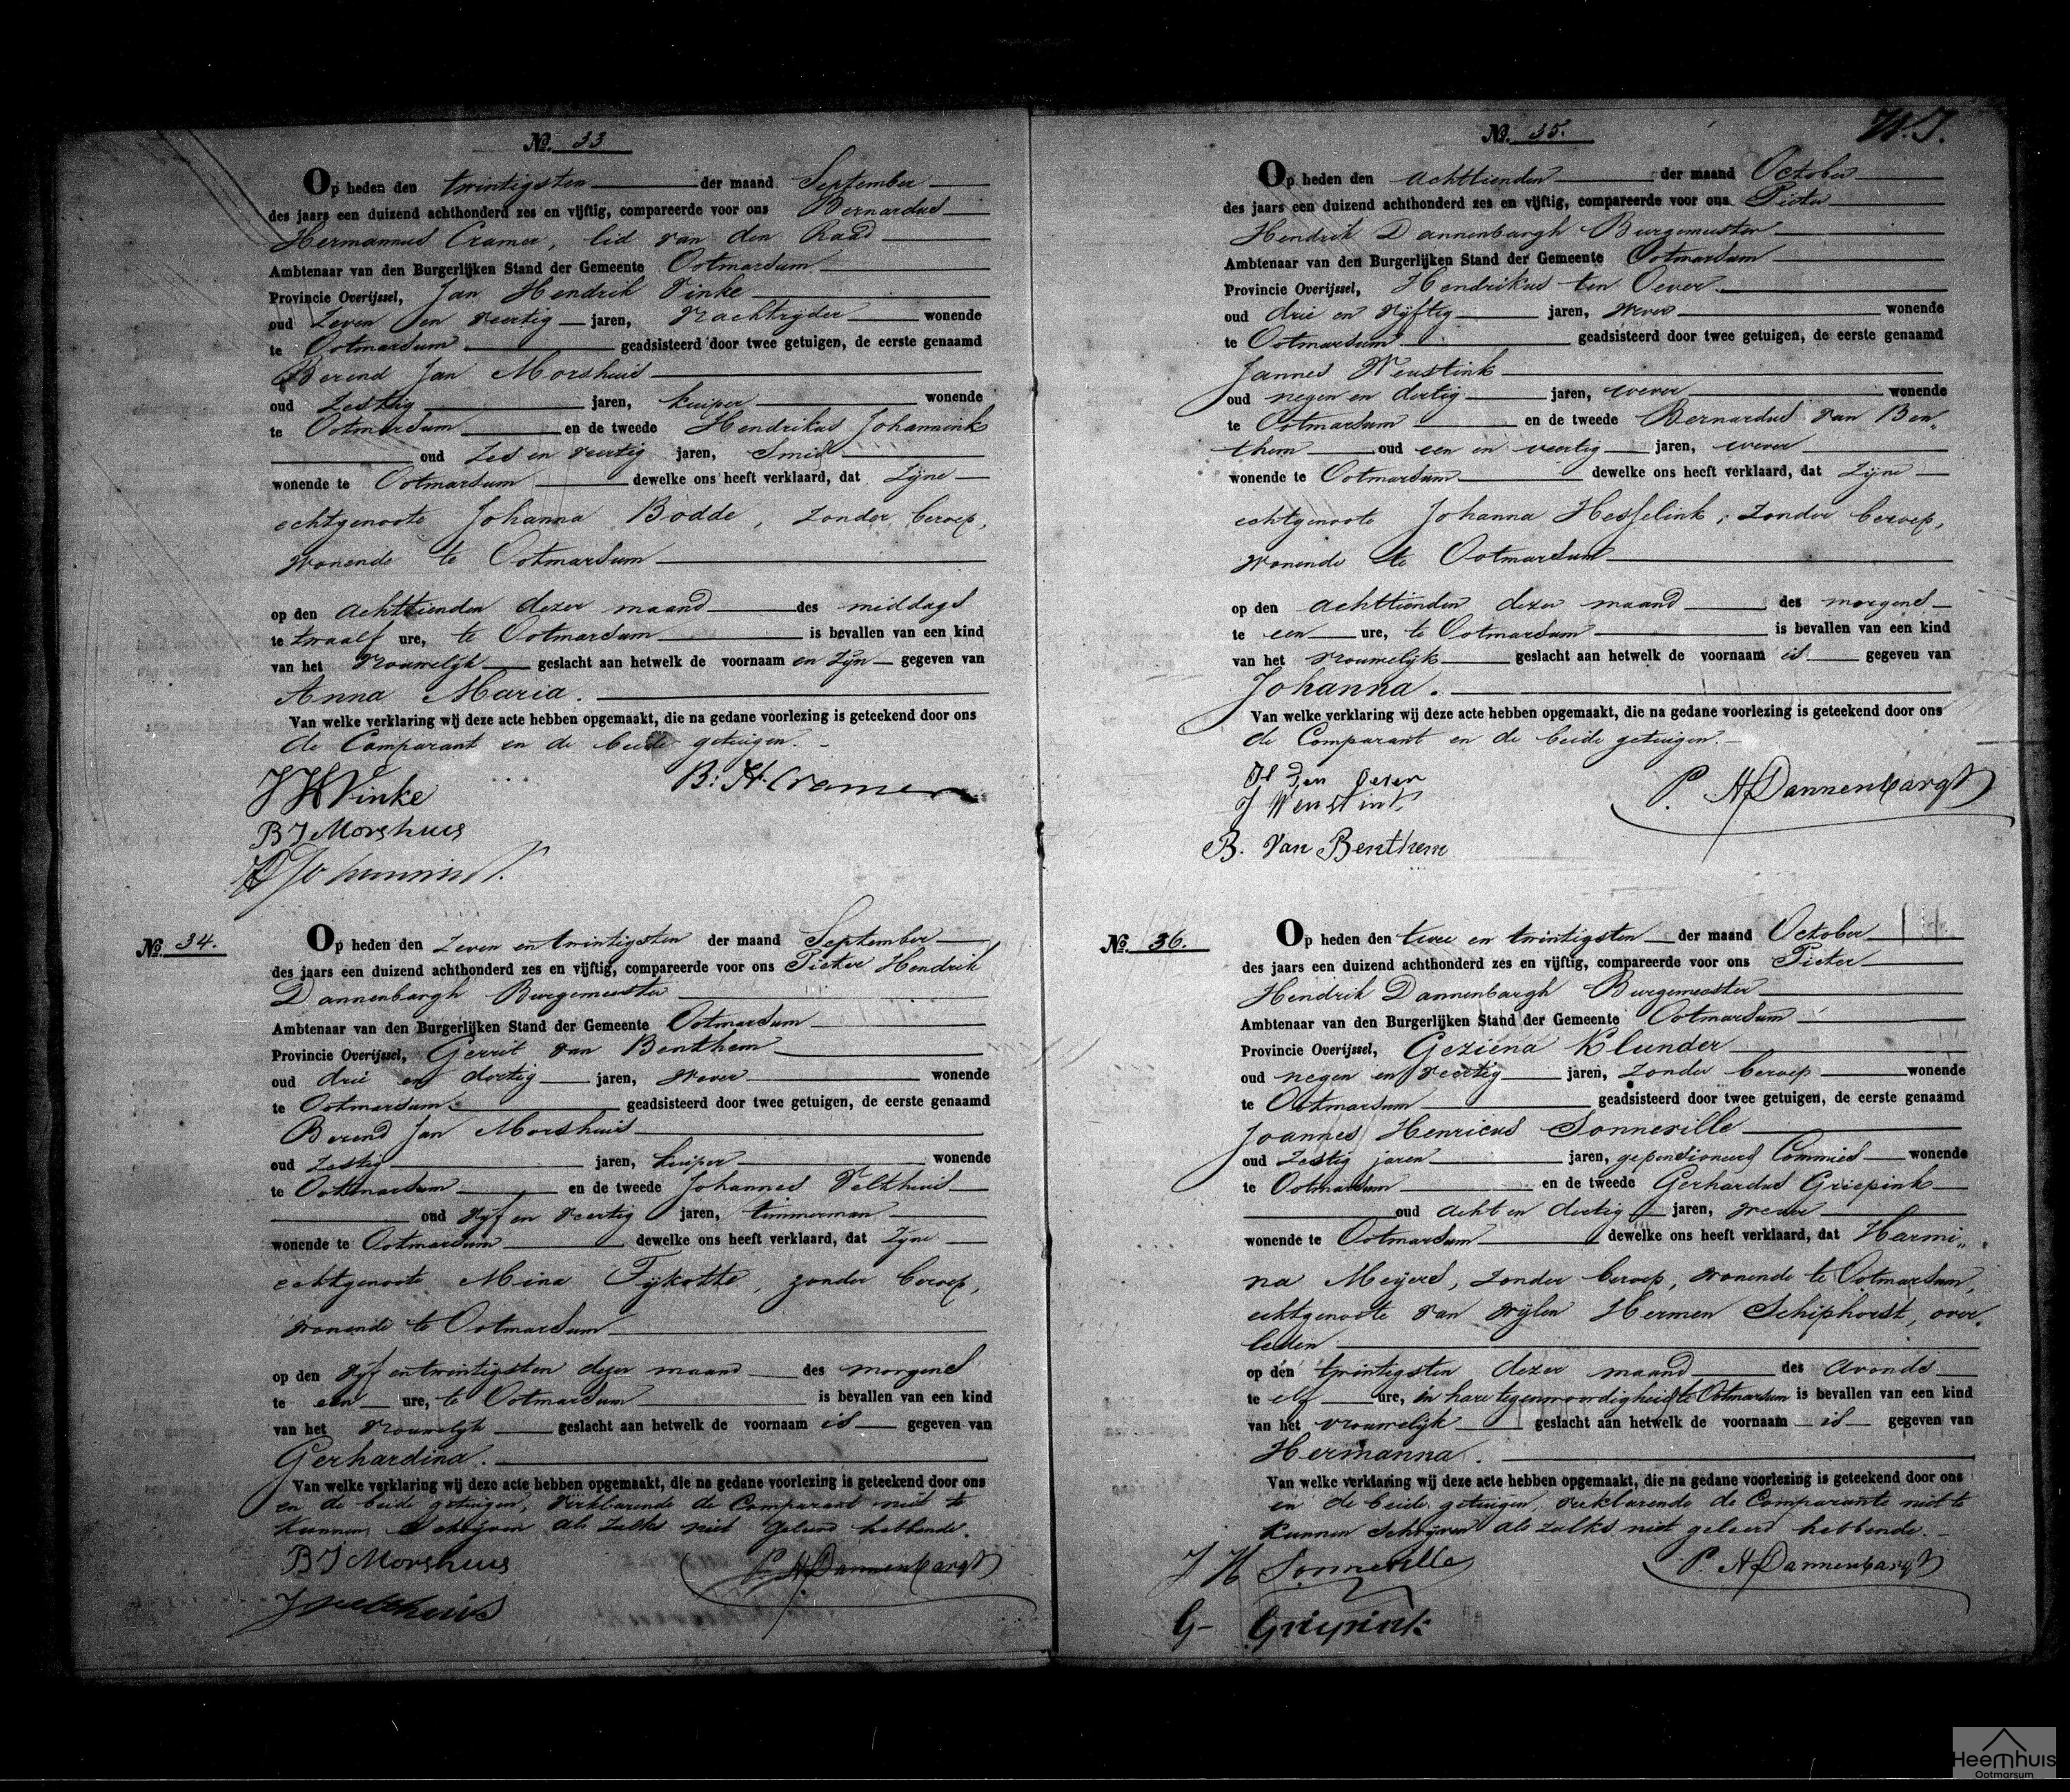 No. 33
Op heden den twintigsten der maand September
des jaars een duizend achthonderd zes en vijftig, compareerde voor ons Bernardus
Hermannus Cramer, lid van den Raad
Ambtenaar van den Burgerlijken Stand der Gemeente Ootmarsum
Provincie Overijssel, Jan Hendrik Vinke
oud Zeven en veertig jaren, Vrachtrijder wonende
te Ootmarsum geadsisteerd door twee getuigen, de eerste genaamd
Berend Jan Morshuis
oud Zestig jaren, kuiper wonende
te Ootmarsum en de tweede Hendrikus Johannink
oud Zes en veertig jaren, Smid
wonende te Ootmarsum dewelke ons heeft verklaard, dat Zijne
echtgenoote Johanna Bodde, zonder beroep,
wonende te Ootmarsum
op den achttienden dezer maand des middags
te twaalf ure, te Ootmarsum is bevallen van een kind
van het vrouwelijk geslacht aan hetwelk de voornaam en zijn gegeven van
Anna Maria.
Van welke verklaring wij deze acte hebben opgemaakt, die na gedane voorlezing is geteekend door ons
de Comparant en de beide getuigen.
J H Vinke
B: H. Cramer
B J Morshuis
No. 34.
Op heden den Zeven en twintigsten der maand September
des jaars een duizend achthonderd zes en vijftig, compareerde voor ons Pieter Hendrik
Dannenbargh Burgemeester
Ambtenaar van den Burgerlijken Stand der Gemeente Ootmarsum
Provincie Overijssel, Gerrit van Benthem
oud drie en dertig jaren, Wever wonende
te Ootmarsum geadsisteerd door twee getuigen, de eerste genaamd
Berend Jan Morshuis
oud Zestig jaren, kuiper wonende
te Ootmarsum en de tweede Johannes Velthuis
oud Vijf en veertig jaren, timmerman
wonende te Ootmarsum dewelke ons heeft verklaard, dat Zijne
echtgenoote Mina Fijkotte, zonder beroep,
wonende te Ootmarsum
op den vijf en twintigsten dezer maand des morgens
te een ure, te Ootmarsum is bevallen van een kind
van het Vrouwelijk geslacht aan hetwelk de voornaam is gegeven van
Gerhardina.
Van welke verklaring wij deze acte hebben opgemaakt, die na gedane voorlezing is geteekend door ons
en de beide getuigen, verklarende de Comparant niet te
kunnen Schrijven als zulks niet geleerd hebbende.
B J Morshuis
P. H Dannenbargh
J Velthuis
No. 35.
Op heden den achttienden der maand October
des jaars een duizend achthonderd zes en vijftig, compareerde voor ons Pieter
Hendrik Dannenbargh Burgemeester
Ambtenaar van den Burgerlijken Stand der Gemeente Ootmarsum
Provincie Overijssel, Hendrikus ten Oever
oud drie en vijftig jaren, Wever wonende
te Ootmarsum geadsisteerd door twee getuigen, de eerste genaamd
Jannes Weustink
oud negen en dertig jaren, wever wonende
te Ootmarsum en de tweede Bernardus van Ben„
them oud een en veertig jaren, wever
wonende te Ootmarsum dewelke ons heeft verklaard, dat Zijne
echtgenoote Johanna Hesselink, zonder beroep,
wonende te Ootmarsum
op den achttienden dezer maand des morgens
te een ure, te Ootmarsum is bevallen van een kind
van het vrouwelijk geslacht aan hetwelk de voornaam is gegeven van
Johanna.
Van welke verklaring wij deze acte hebben opgemaakt, die na gedane voorlezing is geteekend door ons
de Comparant en de beide getuigen.
H ten Oever
J Weustink
P. H Dannenbargh
B. Van Benthem
No. 36.
Op heden den twee en twintigsten der maand October
des jaars een duizend achthonderd zes en vijftig, compareerde voor ons Pieter
Hendrik Dannenbargh Burgemeester
Ambtenaar van den Burgerlijken Stand der Gemeente Ootmarsum
Provincie Overijssel, Geziena Klunder
oud negen en veertig jaren, zonder beroep wonende
te Ootmarsum geadsisteerd door twee getuigen, de eerste genaamd
Joannes Henricus Sonneville
oud Zestig jaren jaren, gepensioneerd Commies wonende
te Ootmarsum en de tweede Gerhardus Griepink
oud acht en dertig jaren, wever
wonende te Ootmarsum dewelke ons heeft verklaard, dat Harmi„
na Meijers, zonder beroep, wonende te Ootmarsum,
echtgenoote van wijlen Hermen Schiphorst, over„
leden
op den twintigsten dezer maand des avonds
te elf ure, in hare tegenwoordigheid te Ootmarsum is bevallen van een kind
van het vrouwelijk geslacht aan hetwelk de voornaam is gegeven van
Hermanna.
Van welke verklaring wij deze acte hebben opgemaakt, die na gedane voorlezing is geteekend door ons
en de beide getuigen, verklarende de Comparante niet te
kunnen Schrijven als zulks niet geleerd hebbende.
J H Sonneville
P. H Dannenbargh
G Griepink
Heemhuis
Ootmarsum